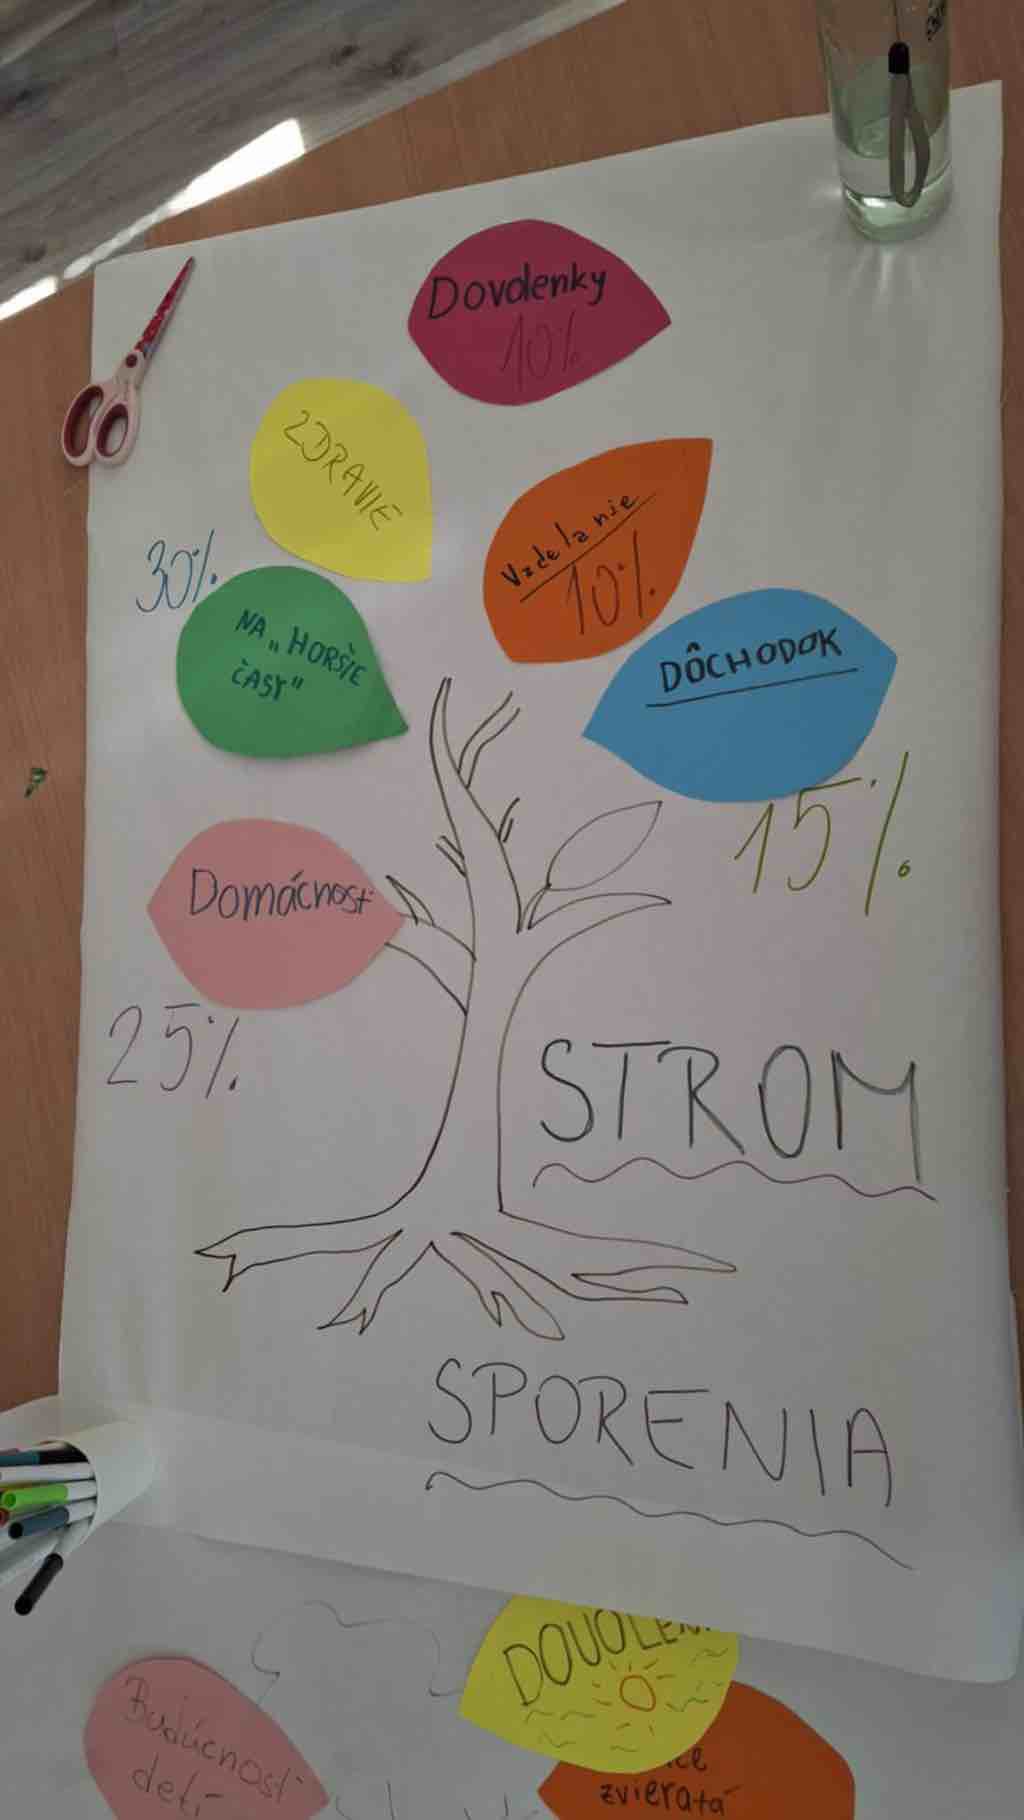 Dovolenky
10%
ZDRAVIE
Vzdelanie
10%
30%
NA „HORŠIE
ČASY"
DÔCHODOK
15%
Domácnosť
25%
STROM
SPORENIA
Budúcnosť
detí
zvieratá